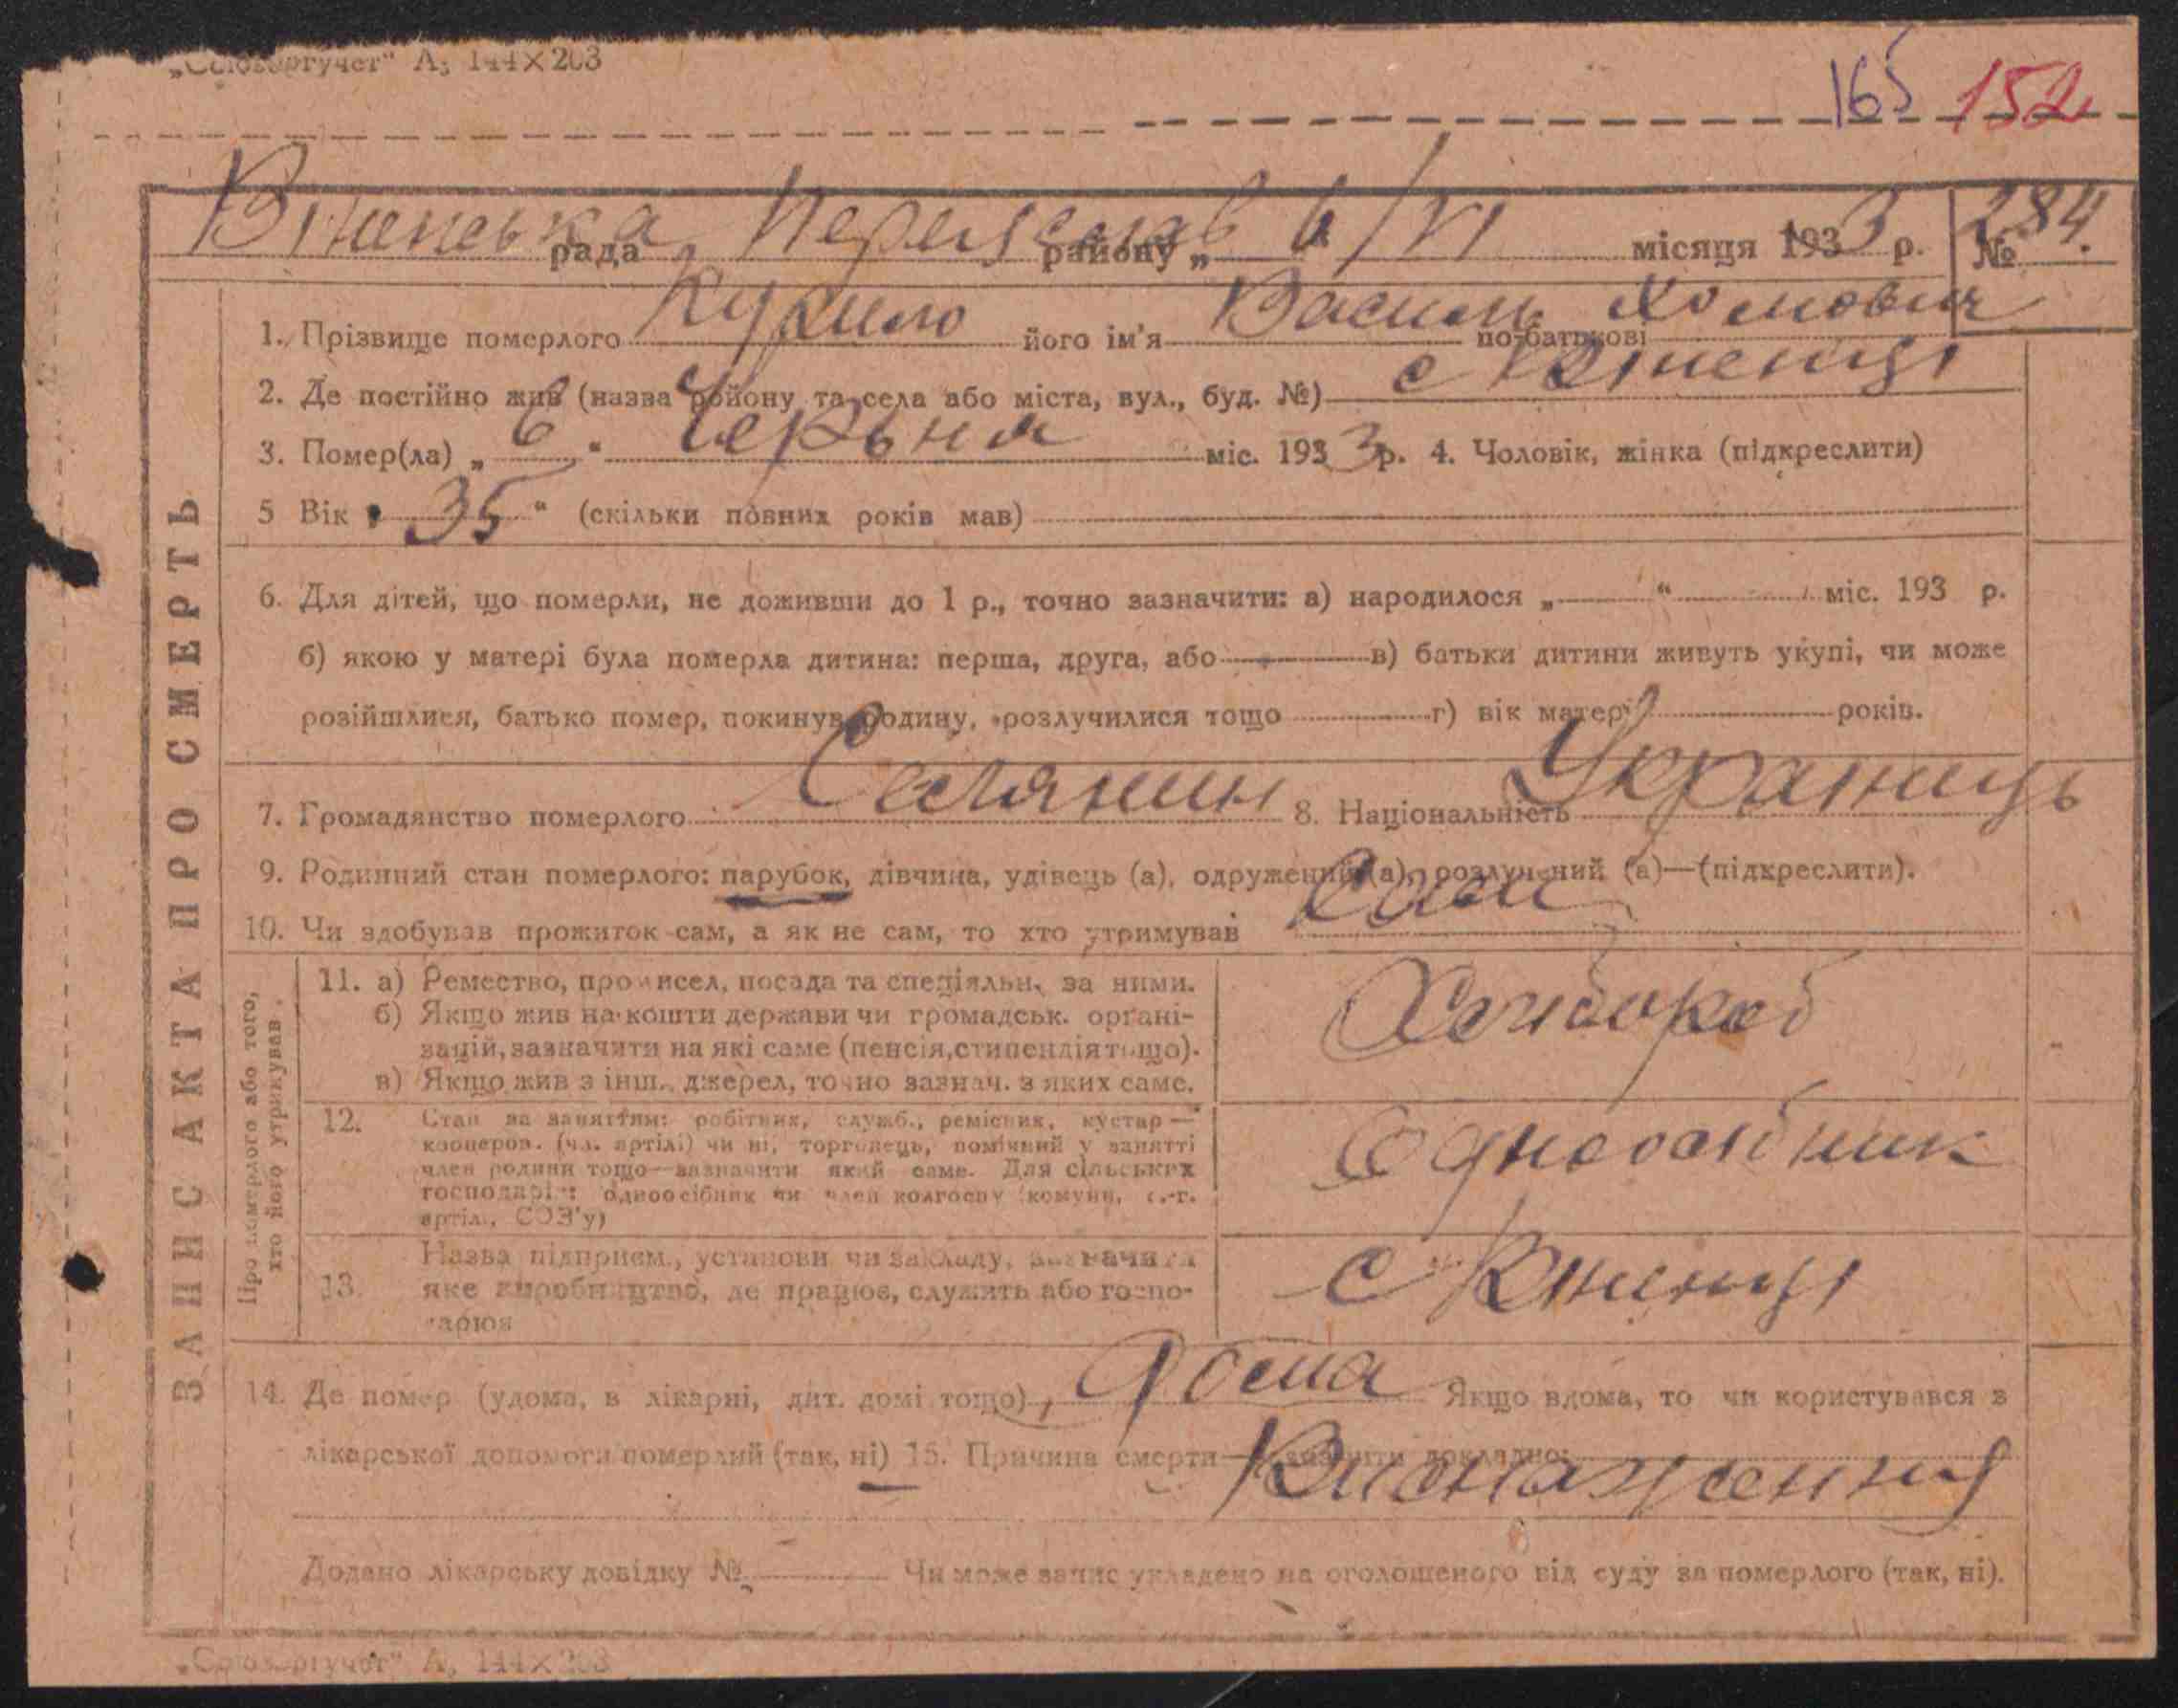 „Союзоргучет“ А5 144×203
165 152
Віненська рада Переяслав району „6/VI місяця 1933 р. № 284.
1. Прізвище померлого його ім'я Василь по-батькові Хомович
2. Де постійно жив (назва району та села або міста, вул., буд. №) с
3. Помер(ла) „6“ Червня міс. 1933 р. 4. Чоловік, жінка (підкреслити)
5 Вік „35“ (скільки повних років мав)
6. Для дітей, що померли, не доживши до 1 р., точно зазначити: а) народилося „ “ міс. 193 р.
б) якою у матері була померла дитина: перша, друга, або в) батьки дитини живуть укупі, чи може
розійшлися, батько помер, покинув родину, розлучилися тощо г) вік матері років.
7. Громадянство померлого Селянин 8. Національність Украінець
9. Родинний стан померлого: парубок, дівчина, удівець (а), одружений (а), розлучений (а)—(підкреслити).
10. Чи здобував прожиток сам, а як не сам, то хто утримував Сам
ЗАПИС АКТА ПРО СМЕРТЬ
Про померлого або того,
хто його утримував
11. а) Ремество, промисел, посада та спеціяльн. за ними.
б) Якщо жив на кошти держави чи громадськ. органі-
зацій, зазначити на які саме (пенсія, стипендія тощо).
в) Якщо жив з інш. джерел, точно зазнач. з яких саме.
Хлібороб
12. Стан за заняттям: робітник, служб., ремісник, кустар —
кооперов. (чл. артілі) чи ні, торговець, помічний у занятті
член родини тощо—зазначити який саме. Для сільських
господарів: одноосібник чи член колгоспу (комуни, с.-г.
артілі, СОЗ'у)
Одноосібник
13. Назва підприєм., установи чи закладу, зазначити
яке виробництво, де працює, служить або госпо-
дарює
с
14. Де помер (удома, в лікарні, дит. домі тощо) Дома Якщо вдома, то чи користувався з
лікарської допомоги померлий (так, ні) 15. Причина смерти— докладно:
Виснаження
Додано лікарську довідку № Чи може запис укладено на оголошеного від суду за померлого (так, ні).
„Союзоргучет“ А5 144×203